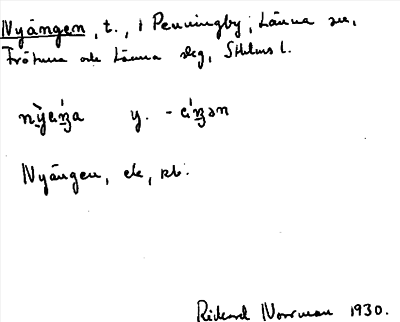 Nyängen, t., i Penningby; Länna sn,
Frötuna och Länna skg, Sthlms l.
y.
Nyängen, ek, kb.
Rickard Norrman 1930.